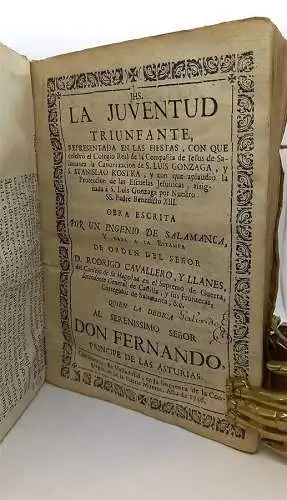 JHS.
LA JUVENTUD
TRIUNFANTE,
REPRESENTADA EN LAS FIESTAS, CON QUE
celebrò el Colegio Real de la Compañia de Jesus de Sa-
lamanca la Canonizacion de S. LUIS GONZAGA, y
S. STANISLAO KOSTKA, y con que aplaudiò la
Proteccion de las Escuelas Jesuiticas, asig-
nada à S. Luis Gonzaga por Nuestro
SS. Padre Benedicto XIII.
OBRA ESCRITA
POR UN INGENIO DE SALAMANCA,
Y SALE A LA ESTAMPA
DE ORDEN DEL SEÑOR
D. RODRIGO CAVALLERO, Y LLANES,
del Consejo de su Magestad en el Supremo de Guerra,
Intendente General de Castilla, y sus Fronteras,
Corregidor de Salamanca, &c.
QUIEN LA DEDICA
AL SERENISSIMO SEÑOR
DON FERNANDO,
PRINCIPE DE LAS ASTURIAS.